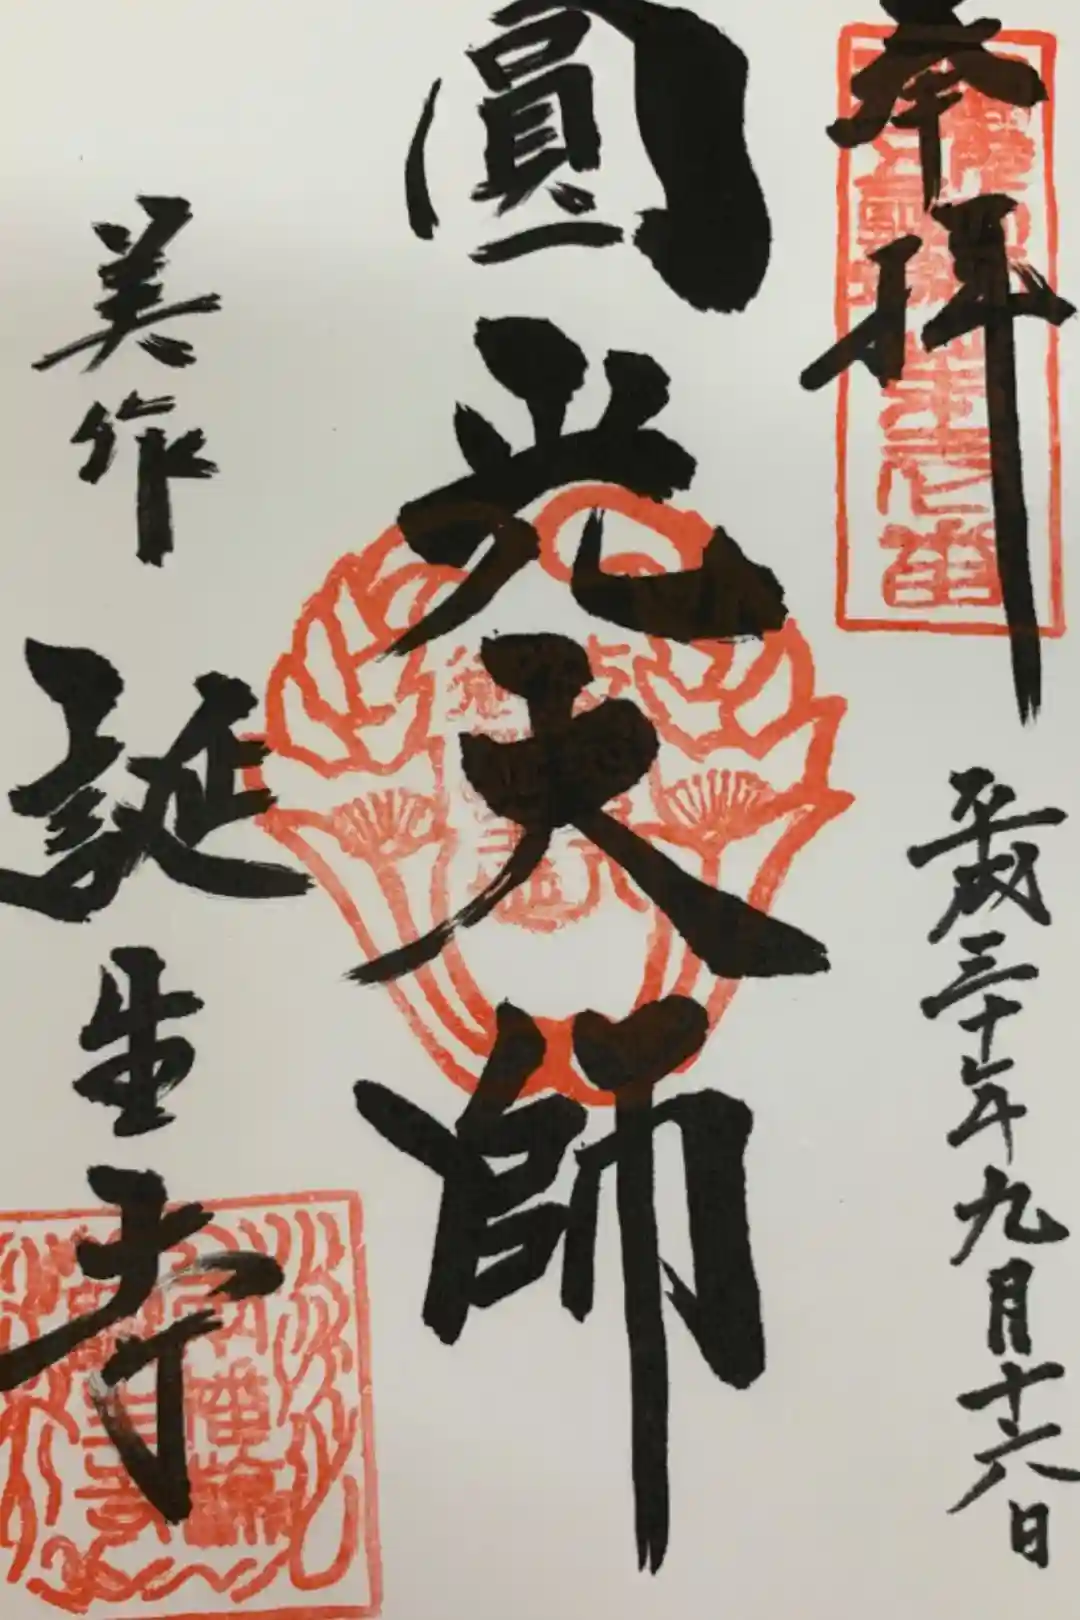 奉拝
平成三十年九月十六日
圓光大師
美作
誕生寺